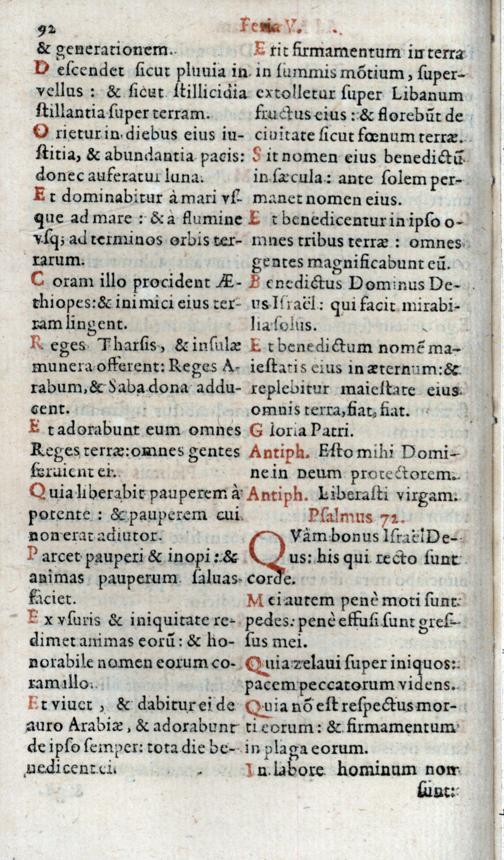 92
Feria V.
& generationem.
Descendet sicut pluuia in
vellus : & sicut stillicidia
stillantia super terram.
Orietur in diebus eius iu-
stitia, & abundantia pacis:
donec auferatur luna.
Et dominabitur à mari vs-
que ad mare : & à flumine
vsq; ad terminos orbis ter-
rarum.
Coram illo procident Æ-
thiopes: & inimici eius ter-
ram lingent.
Reges Tharsis, & insulæ
munera offerent: Reges A-
rabum, & Saba dona addu-
cent.
Et adorabunt eum omnes
Reges terræ: omnes gentes
seruient ei.
Quia liberabit pauperem à
potente : & pauperem cui
non erat adiutor.
Parcet pauperi & inopi : &
animas pauperum saluas
faciet.
Ex vsuris & iniquitate re-
dimet animas eorũ : & ho-
norabile nomen eorum co-
ram illo.
Et viuet , & dabitur ei de
auro Arabiæ, & adorabunt
de ipso semper: tota die be-
nedicent ei.
Erit firmamentum in terra
in summis mõtium, super-
extolletur super Libanum
fructus eius : & florebũt de
ciuitate sicut fœnum terræ.
Sit nomen eius benedictũ
in sæcula : ante solem per-
manet nomen eius.
Et benedicentur in ipso o-
mnes tribus terræ : omnes
gentes magnificabunt eũ.
Benedictus Dominus De-
us Israël : qui facit mirabi-
lia solus.
Et benedictum nomẽ ma-
iestatis eius in æternum: &
replebitur maiestate eius
omnis terra, fiat, fiat.
Gloria Patri.
Antiph. Esto mihi Domi-
ne in Deum protectorem.
Antiph. Liberasti virgam.
Psalmus 72.
QVàm bonus Israël De-
us: his qui recto sunt
corde.
Mei autem penè moti sunt
pedes: penè effusi sunt gres-
sus mei.
Quia zelaui super iniquos:
pacem peccatorum videns.
Quia nõ est respectus mor-
ti eorum : & firmamentum
in plaga eorum.
In labore hominum non
sunt: